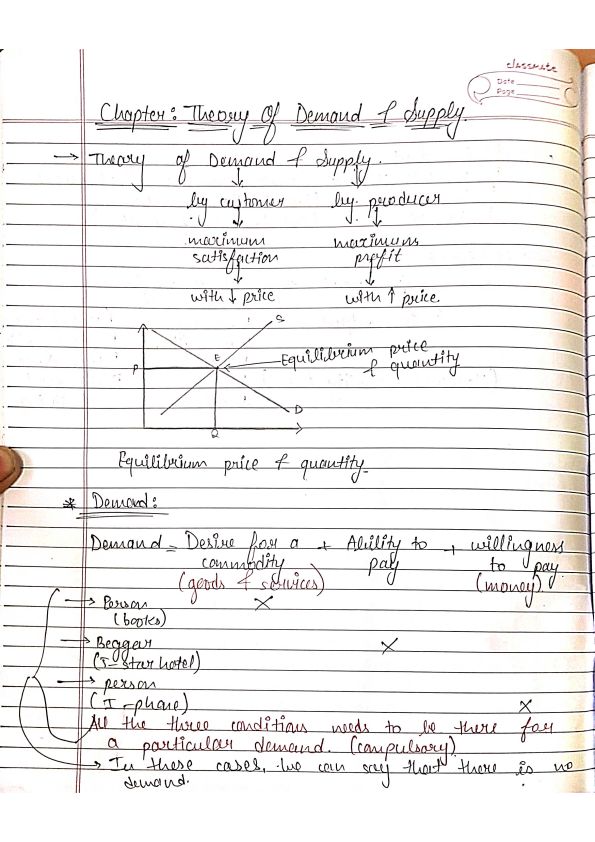 classmate
Date
Page
Chapter: Theory Of Demand & Supply.
→ Theory of Demand & Supply.
↓ ↓
by customer by producer
↓ ↓
maximum maximum
satisfaction profit
↓ ↓
with ↓ price with ↑ price
S
P E ← Equilibrium price
& quantity
D
Q
Equilibrium price & quantity
* Demand:
Demand = Desire for a + Ability to + willingness
commodity pay to pay
(goods & services) (money)
→ Person ×
(books)
→ Beggar ×
(5-star hotel)
→ person
(I-phone) ×
All the three conditions needs to be there for
a particular demand. (compulsary)
→ In these cases, we can say that there is no
demand.